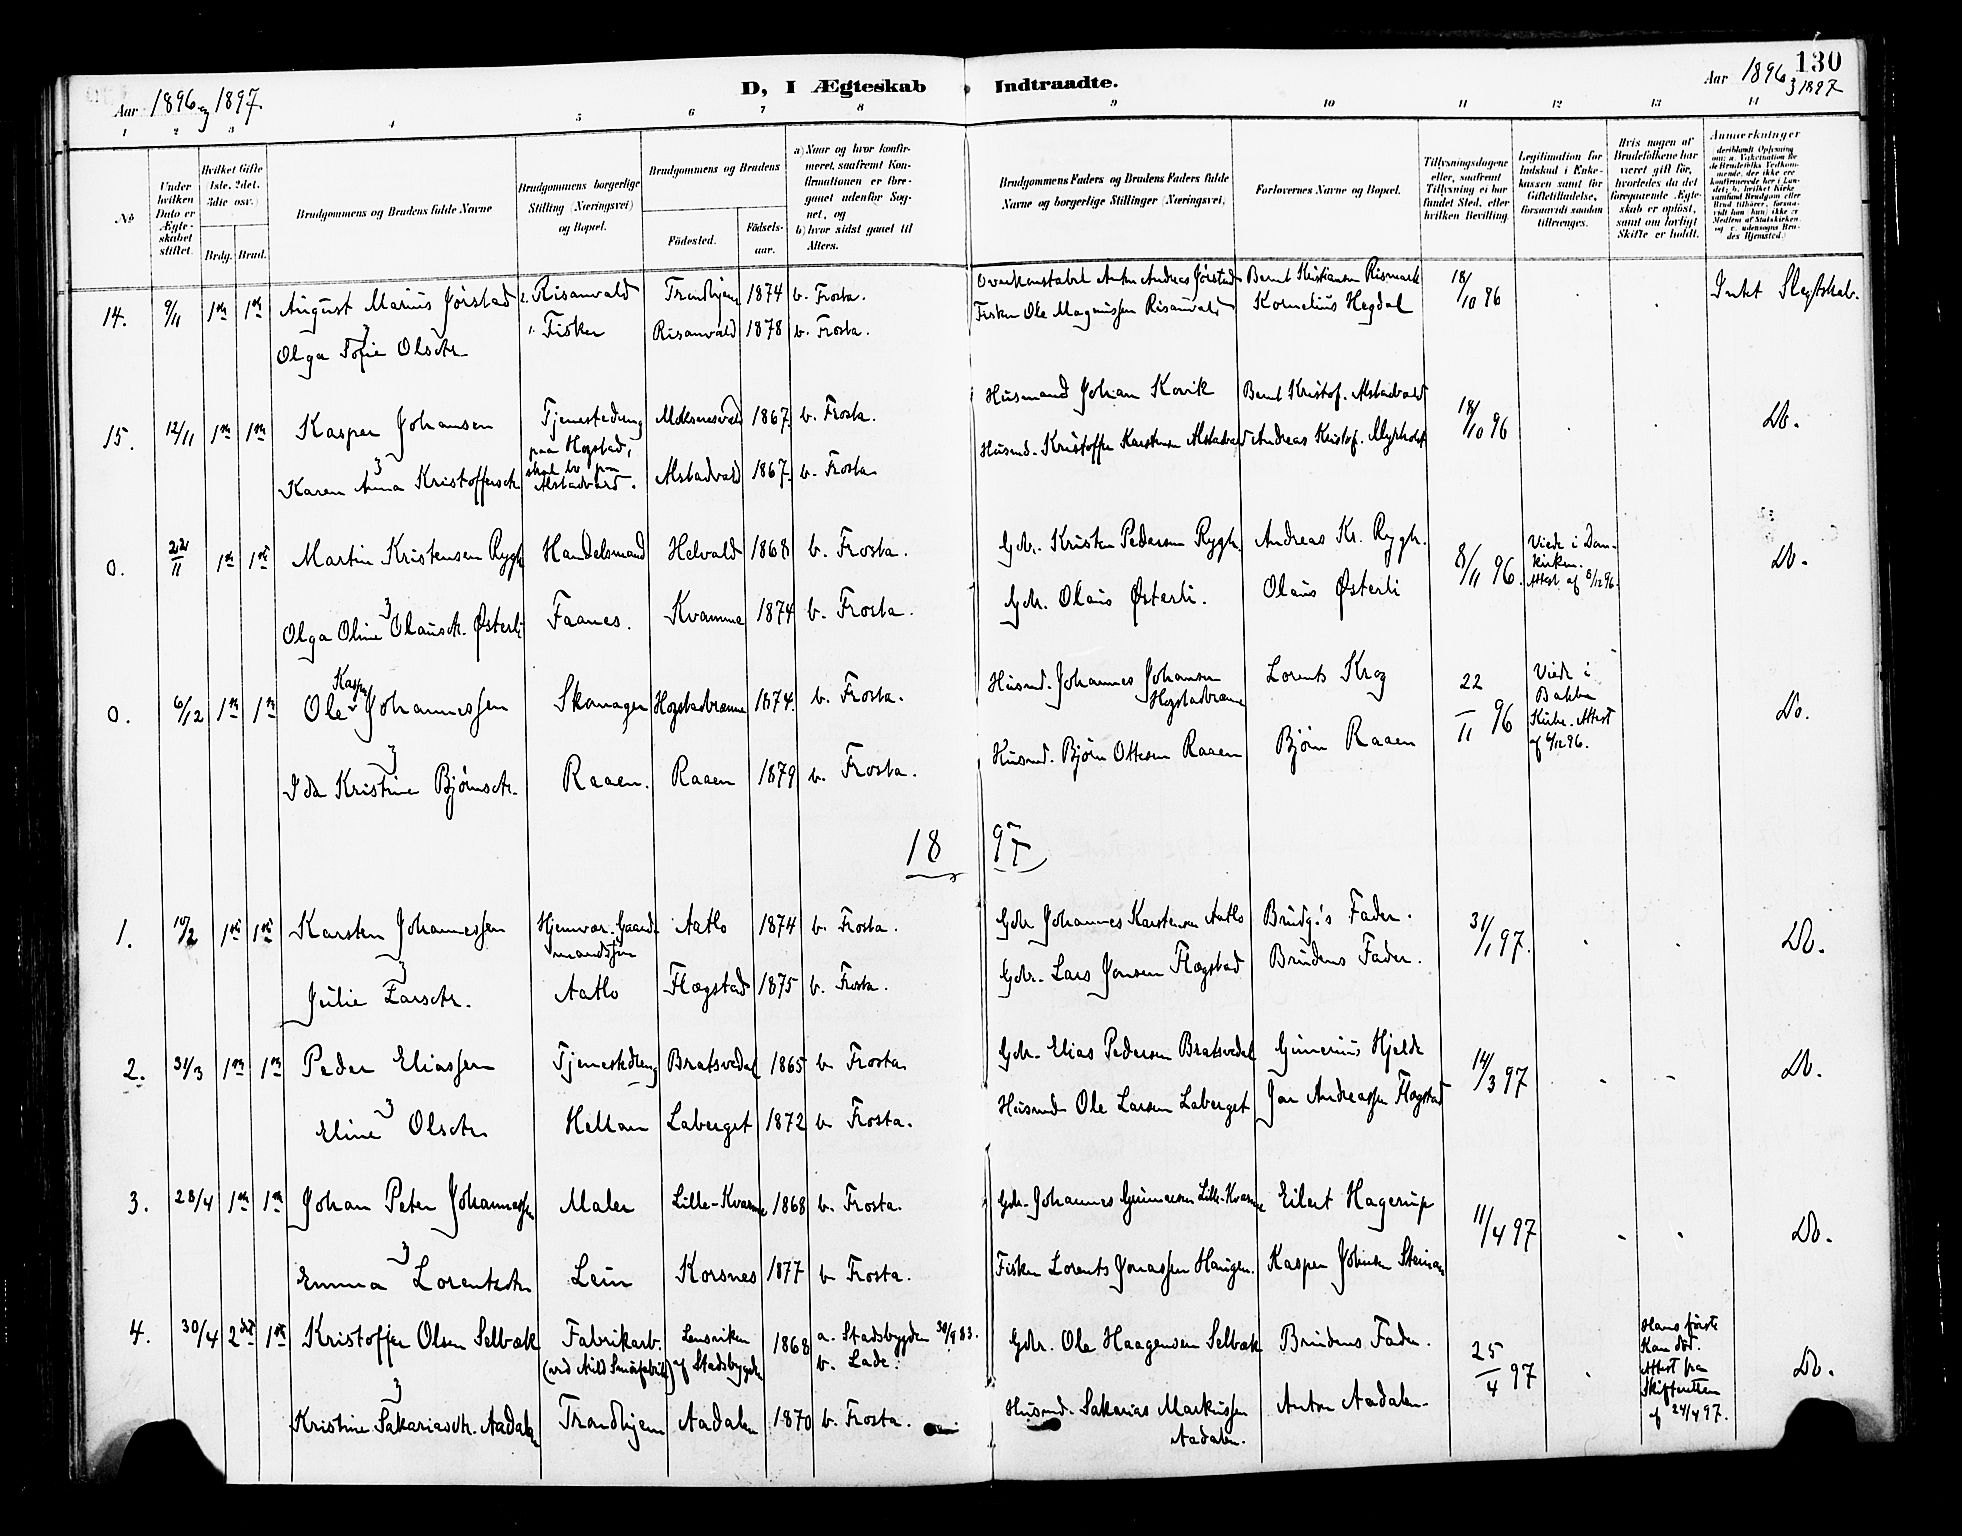 130
Aar 1896 og 1897.
D, I Ægteskab Indtraadte.
Aar 1896 og 1897
1 2 3 4 5 6 7 8 9 10 11 12 13 14
No
Under hvilken Dato er Ægteskabet stiftet.
Hvilket Gifte 1ste. 2det. 3die osv.)
Brdg. Brud.
Brudgommens og Brudens fulde Navne
Brudgommens borgerlige Stilling (Næringsvei) og Bopæl.
Brudgommens og Brudens
Fødested.
Fødselsaar.
a) Naar og hvor konfirmeret, saafremt Konfirmationen er foregaaet udenfor Sognet, og
b) hvor sidst gaaet til Alters.
Brudgommens Faders og Brudens Faders fulde Navne og borgerlige Stillinger (Næringsvei).
Forlovernes Navne og Bopæl.
Tillysningsdagene eller, saafremt Tillysning ei har fundet Sted, efter hvilken Bevilling.
Legitimation for Indskud i Enkekassen samt for Giftetilladelse, forsaavidt saadan tiltrænges.
Hvis nogen af Brudefolkene har været gift før, hvorledes da det foregaaende Ægteskab er opløst, samt om lovligt Skifte er holdt.
Anmærkninger
14. 9/11 1ste 1ste August Marius Jørstad Risanvald Trondhjem 1874 b. Frosta. Overkonstabel Anton Andreas Jørstad Bernt Kristiansen Rismark 18/10 96 Intet Slegtskab.
Olga Sofie Olsdtr. Fisker Risanvald 1878 b. Frosta. Fisker Ole Magnussen Risanvald Kornelius Hegdal
15. 12/11 1ste 1ste Kasper Johansen Tjenestedreng paa Hogstad, skal bo paa Alstadvald. 1867. b. Frosta. Husmand Johan Korvik Bernt Kristof. Alstadvald 18/10 96 Do.
Karen Anna Kristoffersdtr. Alstadvald 1867. b. Frosta Husmd. Kristoffer Karstensen Alstadvald Andreas Kristof. Myrholt
0. 22/11 1ste 1ste Martin Kristensen Rygh Handelsmand Helvald 1868 b. Frosta. Gdbr. Kristen Pedersen Rygh Andreas Kr. Rygh. 8/11 96. Viede i Domkirken. Attest af 8/12 96. Do.
Olga Oline Olausdtr. Østerli Faanes. Kvamme 1874 b. Frosta. Gdbr. Olaus Østerli. Olaus Østerli
0. 6/12 1ste 1ste Ole Kasper Johannessen Skomager Hogstadbrænne 1874. b. Frosta. Husmd. Johannes Johansen Hogstadbrænne Lorents Krog 22/11 96 Viede i Bakke Kirke. Attest af 6/12 96. Do.
Ida Kristine Bjørnsdtr. Raaen. Raaen 1879 b. Frosta. Husmd. Bjørn Ottesen Raaen Bjørn Raaen
1897
1. 10/2 1ste 1ste Karsten Johannessen Hjemvær. Gaardmandssøn Aatlo 1874 b. Frosta. Gdbr. Johannes Karstensen Aatlo Brudg:s Fader. 31/1 97. Do.
Julie Larsdtr. Aatlo Flægstad 1875 b. Frosta. Gdbr. Lars Jonsen Flægstad Brudens Fader.
2. 31/3 1ste 1ste Peder Eliassen Tjenestedreng Bratsvedal 1865 b. Frosta. Gdbr. Elias Pedersen Bratsvedal Gunerius Hjelde 14/3 97 Do.
Eline Olsdtr. Hellan Laberget 1872 b. Frosta. Husmd. Ole Larsen Laberget Jon Andreassen Flægstad
3. 28/4 1ste 1ste Johan Peter Johannessen Maler Lille-Kvamme 1868 b. Frosta. Gdbr. Johannes Gunnersen Lille-Kvamme Eilert Hagerup 11/4 97 Do.
Emma Lorentsdtr. Lein Korsnes 1877 b. Frosta. Fisker Lorents Jonassen Haugen. Kasper
4. 30/4 2det 1ste Kristoffer Olsen Selbæk Fabrikarb. (ved Nils Smørfabrik) Lensviken af Stadsbygden 1868 a. Stadsbygden 30/9 83. b. Lade. Gdbr. Ole Haagensen Selbæk Brudens Fader. 25/4 97 Hans første Kone død. Attest fra Skifteretten af 24/4 97. Do.
Kristine Sakariasdtr. Aadalen Trondhjem Aadalen 1870 b. Frosta. Husmd. Sakarias Markussen Aadalen. Anton Aadalen.